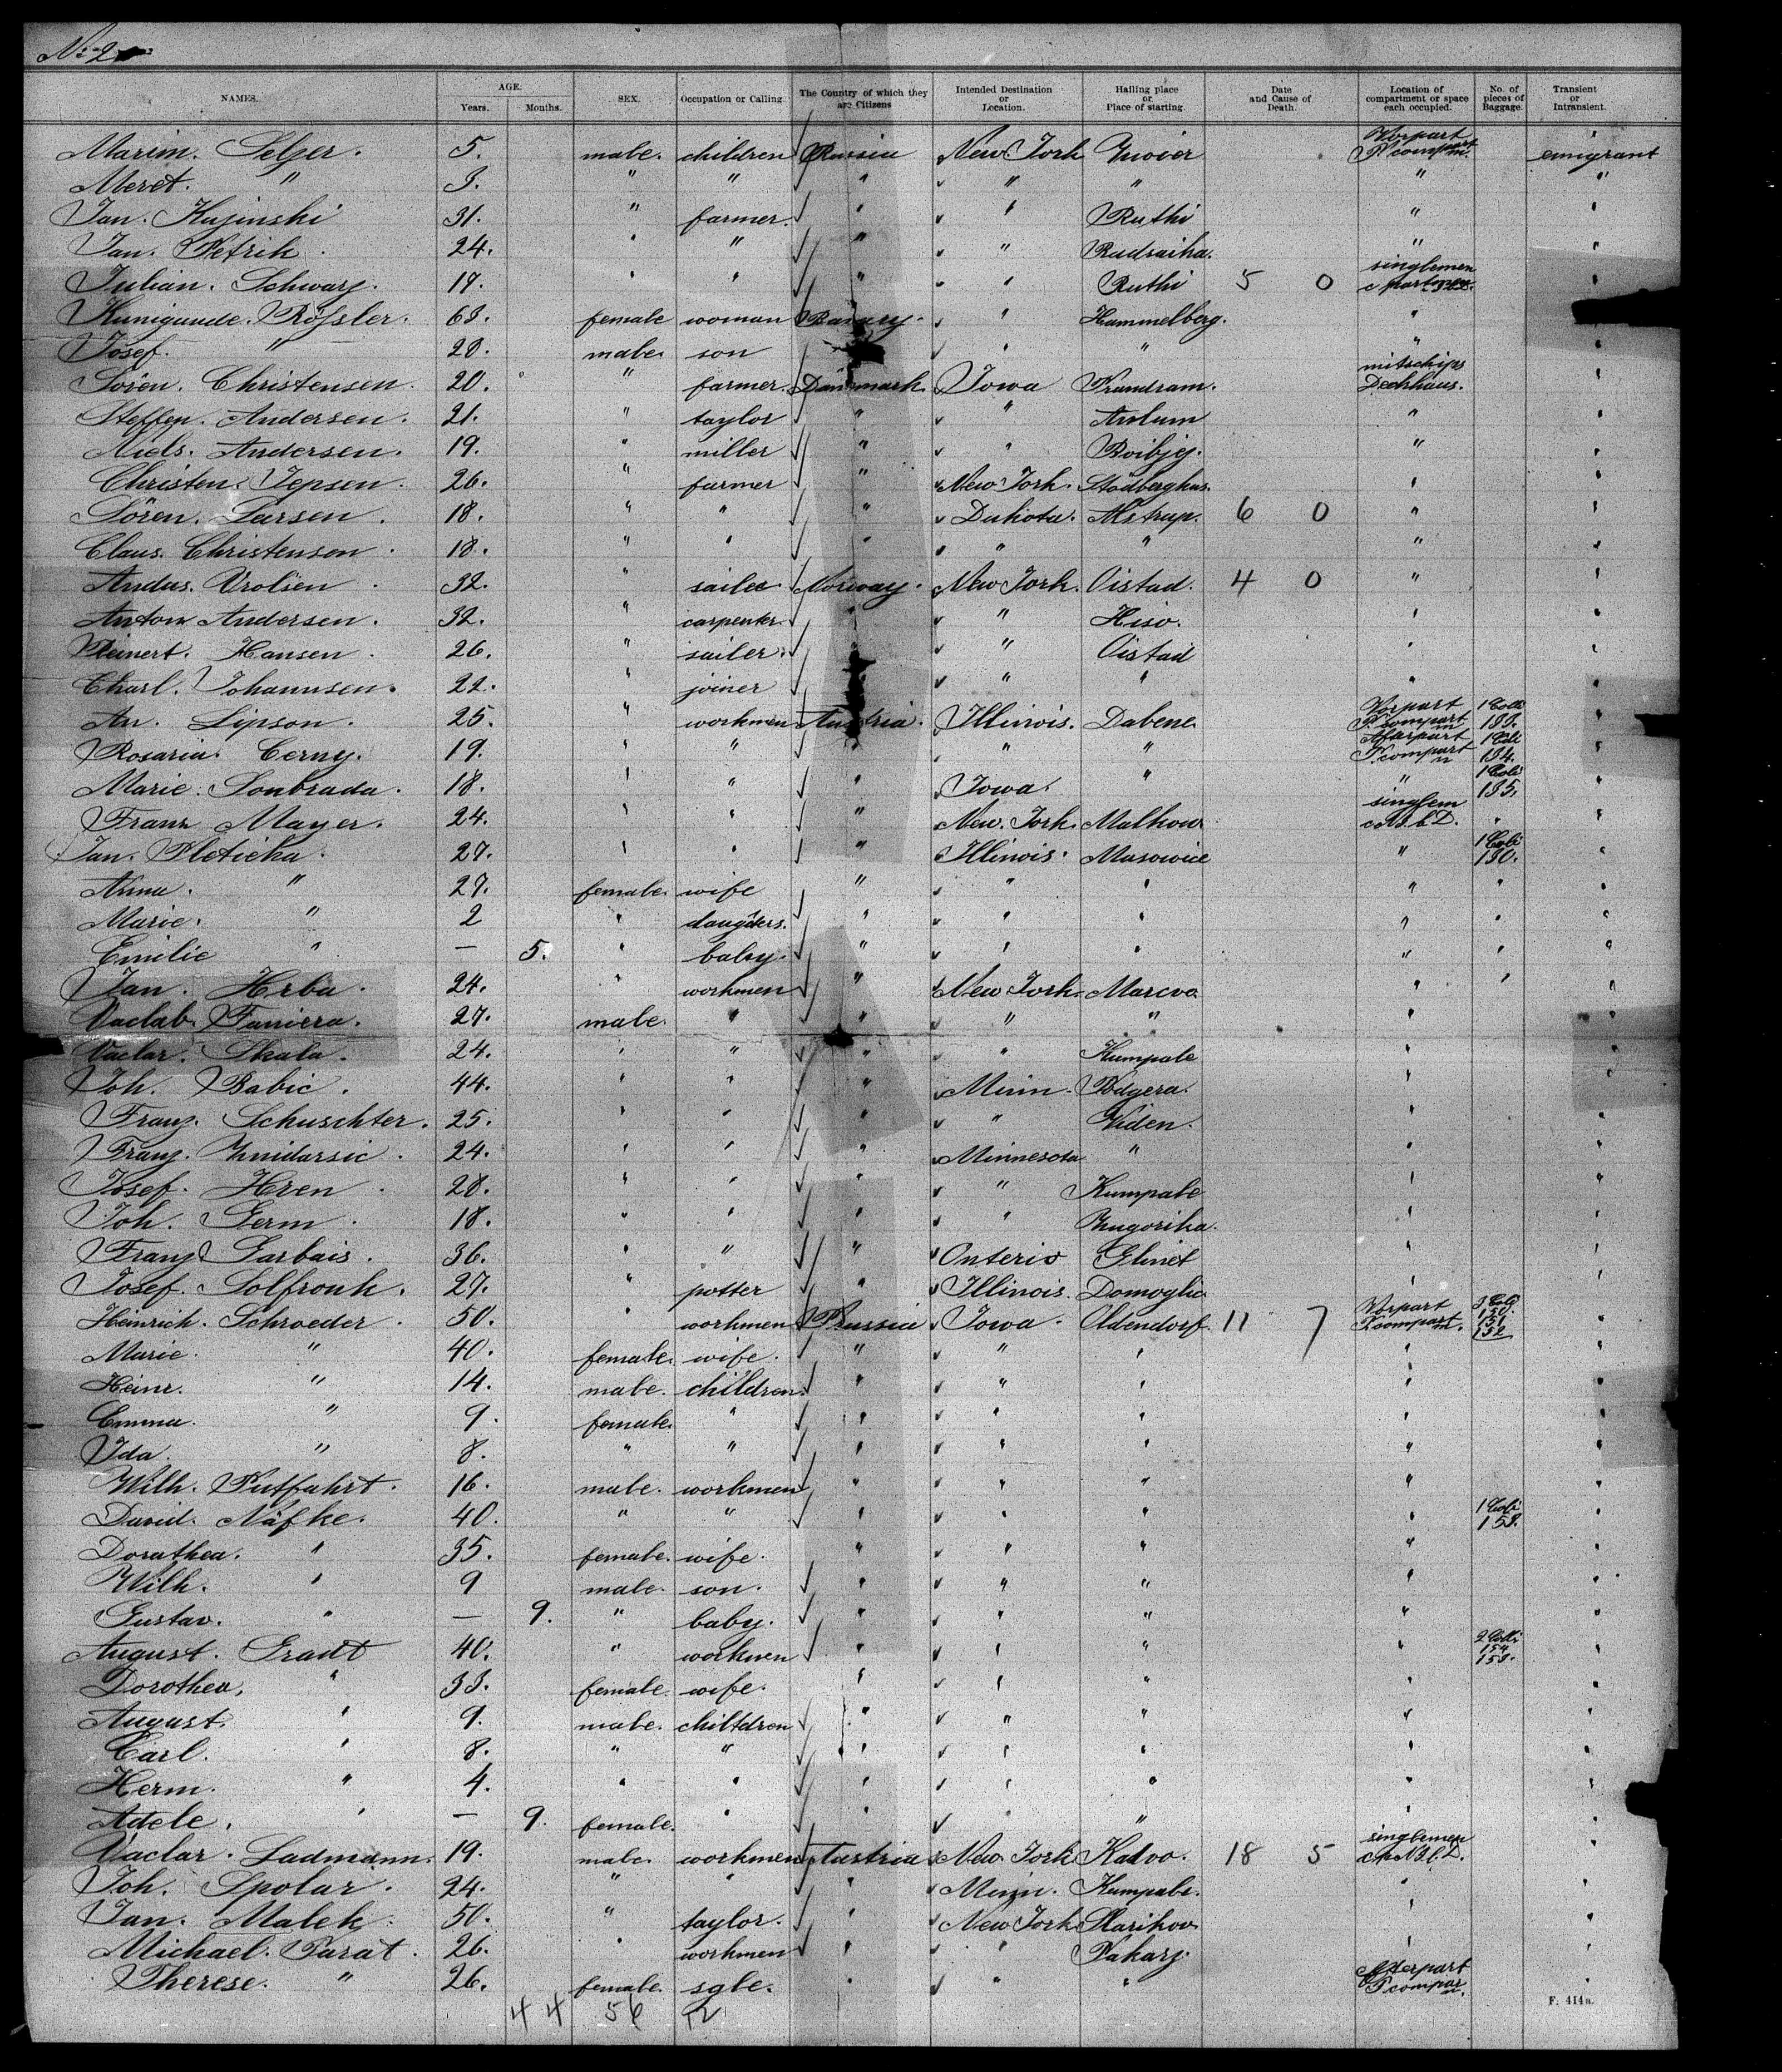 No 2
NAMES. AGE. Years. Months. SEX. Occupation or Calling. The Country of which they are Citizens Intended Destination or Location. Hailing place or Place of starting. Date and Cause of Death. Location of compartment or space each occupied. No. of pieces of Baggage. Transient or Intransient.
Marim. Selzer. 5. male. children Russia New York Vorpart compart emigrant
Meret. " 3. " " " " " " "
Jan. Kujinski 31. " farmer. " " Ruthi "
Jan. Petrik. 24. " " " " Rudraika. "
Julian. Schwarz. 19. " " " " Ruthi 5 0 singlemen
Kunigunde. Rößler. 63. female woman " Hammelberg. "
Josef. " 28. male. son " " "
Sören. Christensen. 20. " farmer. Danmark. Iowa mitschips Deckhaus.
Steffen. Andersen. 21. " taylor " " "
Niels. Andersen. 19. " miller " " "
Christen. Jepsen. 26. " farmer " New York. "
Sören. Larsen. 18. " " " Dakota. Alstrup. 6 0 "
Claus. Christensen. 18. " " " " " "
32. " Norway. New York. Oistad. 4 0 "
Anton Andersen. 32. " carpenter. " " Hisö. "
Hansen. 26. " sailer. " " Oistad "
Charl. Johannsen. 22. " joiner " " " "
An. Lipson. 25. " workmen Austria. Illinois. Dabene Vorpart compart 1 Colli
Rosaria. Cerny. 19. " " " " " Afterpart compart 1 Coli 134.
Marie. Sonbrada. 18. " " " Iowa. " " 1 Coli 135.
Franz Mayer. 24. " " " New York. Malkow singlem "
Jan. Pleticha. 27. " " " Illinois. Musowice " 1 Coli 130.
Anna. " 27. female. wife " " " " "
Marie. " 2 " daugters. " " " " "
Emilie " — 5. " baby. " " " " "
Jan. Hrba. 24. " workmen " New York. Marcva " "
Vaclab. 27. male. " " " " "
Vaclar. Skala. 24. " " " " Kumpale "
Joh. Babic. 44. " " " Minn. Podgera. "
Franz. Schuschter. 25. " " " " Widen. "
Franz. Znidarsic. 24. " " " Minnesota " "
Josef. Hren. 28. " " " " Kumpale "
Joh. Germ. 18. " " " " Zugorika. "
Franz Garbais. 36. " " " Onterio Glinet "
Josef. Solfronk. 27. " potter " Illinois. Domoglic "
Heinrich. Schroeder. 50. " workmen Prussia Iowa. Oldendorf. 11 7 Vorpart compart. 3 Coli 150. 151 152
Marie. " 40. female. wife. " " " "
Heinr. " 14. male. children. " " " "
Emma. " 9. female. " " " " "
Ida. " 8. " " " " " "
Wilh. Putfahrt. 16. male. workmen " " " "
David. Näfke. 40. " " " " " " 1 Coli 153.
Dorathea. " 35. female. wife. " " " "
Wilh. " 9 male. son. " " " "
Gustav. " — 9. " baby. " " " "
August. Gradt 40. " workmen " " " " 2 Colli 154
Dorothea, " 33. female. wife. " " " "
August. " 9. male. chiltdren " " " "
Carl. " 8. " " " " " "
Herm. " 4. " " " " " "
Adele. " — 9. female. " " " " "
Vaclar. Ladmann. 19. male. workmen Austria New York Kalvo. 18 5 singlemen
Joh. Spolar. 24. " " " Minn. Kumpale. "
Jan. Malek. 50. " taylor. " New York "
Michael. Parat. 26. " workmen " " Pakarz. "
Therese. " 26. female. sgle. " " " Afterpart compar
44 56 12
F. 414a.